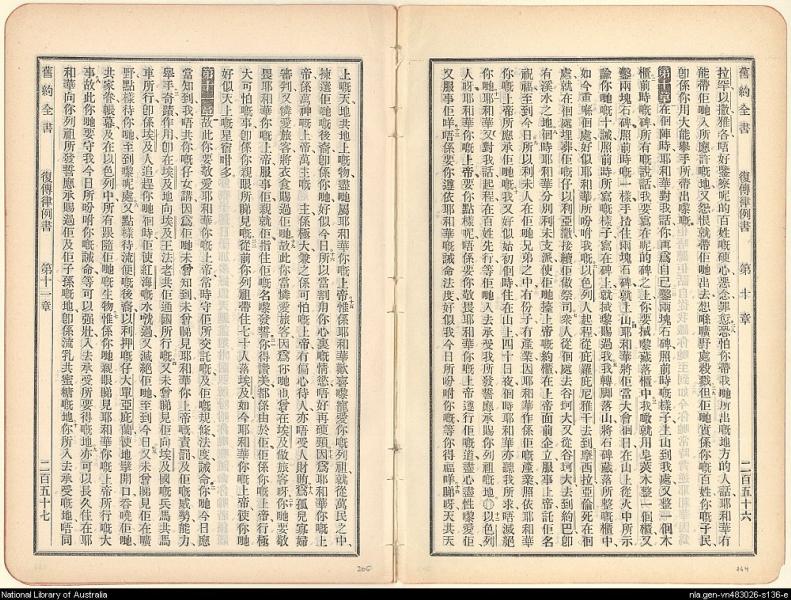 舊約全書 復傳律例書 第十章 二百五十六
拉罕以撒雅各唔好鑒察呢的百姓嘅硬心惡念罪惡恐怕你帶我哋所出嘅地方的人話耶和華有
能帶佢哋入所應許嘅地又怨恨就帶佢哋出去想喺曠野處殺戮但佢哋實係你嘅百姓你嘅子民
卽係你用大能舉手所帶出嚟嘅
第十章在個陣時耶和華對我話你再爲自己鑿兩塊石碑照前時嘅樣子上山到我處又整一個木
櫃前時嘅碑所有嘅說話我要寫在呢的碑之上你要拭嚟藏落櫃中我噉就用皂莢木整一個櫃又
鑿兩塊石碑照前時嘅一樣手拾住兩塊石碑就上山耶和華將佢當大會個日在山上從火中所示
諭你哋嘅十誡照前時所寫嘅樣子寫在碑上就拭嚟賜過我我轉脚落山將石碑藏落所整嘅櫃中
如今重喺個處好似耶和華所吩咐我嘅以色列人起程從庇羅庇尼雅干去到摩西拉亞倫死在個
處就在個處埋葬佢嘅仔以利亞撒接續佢做祭司衆人從個處去谷坷大又從谷坷大去到約巴卽
有溪水之地個時耶和華分別利未支派使佢哋擡上帝嘅約櫃在上帝面前企立服事上帝託佢名
祝福至到今日所以利未人在佢哋兄弟之中冇份子冇產業因耶和華作佢嘅產業照依耶和華
你嘅上帝所應承佢哋嘅我又好似起初個時住在山上四十日夜個時耶和華亦聽我所求唔滅絕
你哋耶和華又對我話起程在百姓先行等佢哋入去承受我所發誓應承賜你列祖嘅地〇以色列
人呀耶和華你嘅上帝要你點樣呢唔係要你敬畏耶和華你嘅上帝遵行佢嘅道盡心盡性嚟愛佢
又服事佢咩唔係要你遵依耶和華嘅誡命法度好似我今日所吩咐你嘅等你得福咩睇呀天共天
上嘅天地共地上嘅物盡哋屬耶和華你嘅上帝惟係耶和華歡喜嚟寵愛你嘅列祖就從萬民之中
揀選佢哋嘅後裔卽係你哋好似今日所以當割用你心裏嘅情慾唔好再硬頸因爲耶和華你嘅上
帝係萬神嘅上帝萬主嘅 主係極大兼之係可怕嘅上帝冇偏心待人亦唔受人財賄爲孤兒寡婦
審判又憐愛旅客將衣食賜過佢哋故此你當憐愛旅客因爲你哋也曾在埃及做旅客呀你哋要敬
畏耶和華你嘅上帝服事佢親就佢指住佢嘅名嚟發誓你得讚美都係由於佢佢係你嘅上帝行極
大可怕嘅事卽係你親眼所睇見嘅從前你列祖帶住七十人落埃及如今耶和華你嘅上帝使你哋
好似天上嘅星宿咁多
第十一章故此你要敬愛耶和華你嘅上帝常時守佢所交託嘅及佢嘅規條法度誡命你哋今日應
當知到我唔共你嘅仔女講因爲佢哋未曾知到未曾睇見耶和華你上帝嘅責罰及佢嘅威勢能力
舉手奇蹟作用卽在埃及地向埃及王法老共佢通國所行嘅又未曾睇見佢向埃及國嘅兵馬共馬
車所行卽係埃及人追趕你哋個時佢使紅海嘅水𣹢過又滅絕佢哋至到今日又未曾睇見佢在曠
野點樣待你哋至到嚟呢處又點樣待流便嘅後裔以利押嘅仔大單亞庇蘭使地擘開口吞嘵佢哋
共家眷帳幕及在以色列中所有跟隨佢哋嘅生物惟係你哋親眼睇見耶和華你上帝所行嘅大
事故此你哋要守我今日所吩咐你嘅誡命等可以强壯入去承受所要得嘅地亦可以長久住在耶
和華向你列祖所發誓應承賜過佢及佢子孫嘅地卽係流乳共蜜糖嘅地你所入去承受嘅地唔同
舊約全書 復傳律例書 第十一章 二百五十七
206
144
National Library of Australia
nla.gen-vn483026-s136-e